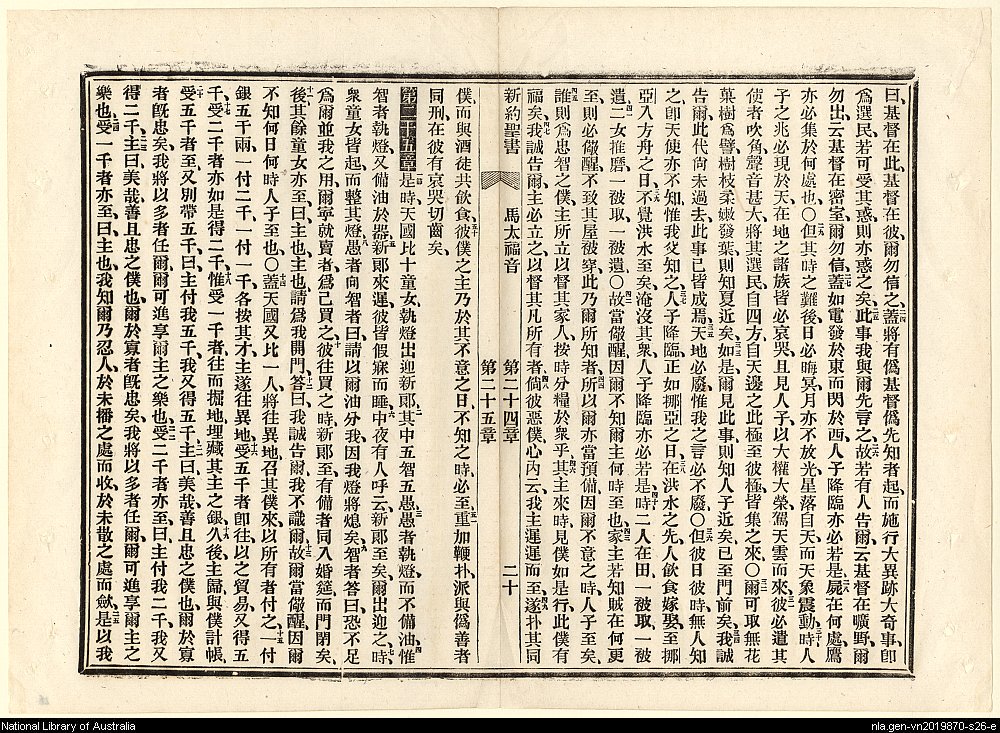 曰、基督在此、基督在彼、爾勿信之、蓋將有僞基督僞先知者起、而施行大異跡大奇事、卽
爲選民、若可受其惑、則亦惑之矣、此事我與爾先言之、故若有人告爾云、基督在曠野、爾
勿出、云基督在密室、爾勿信、蓋如電發於東而閃於西、人子降臨亦必若是、屍在何處、鷹
亦必集於何處也、〇但其時之難後、日必晦冥、月亦不放光、星落自天、而天象震動、時人
子之兆必現於天、在地之諸族皆必哀哭、且見人子以大權大榮、駕天雲而來、彼必遣其
使者、吹角聲音甚大、將其選民、自四方、自天邊之此極至彼極、皆集之來、〇爾可取無花
菓樹爲譬、樹枝柔嫩發葉、則知夏近矣、如是爾見此事、則知人子近矣、已至門前矣、我誠
告爾、此代尚未過去、此事已皆成焉、天地必廢、惟我之言必不廢、〇但彼日彼時、無人知
之、卽天使亦不知、惟我父知之、人子降臨、正如挪亞之日、在洪水之先、人飲食嫁娶、至挪
亞入方舟之日、不覺洪水至矣、淹沒其衆、人子降臨亦必若是、時二人在田、一被取、一被
遺、二女推磨、一被取、一被遺、〇故當儆醒、因爾不知爾主何時至也、家主若知賊在何更
至、則必儆醒、不致其屋被穿、此乃爾所知者、所以爾亦當預備、因爾不意之時、人子至矣、
誰則爲忠智之僕、主所立以督其家人、按時分糧於衆乎、其主來時、見僕如是行、此僕有
福矣、我誠告爾、主必立之以督其凡所有者、倘彼惡僕心內云、我主遲遲而至、遂扑其同
新約聖書 馬太福音 第二十四章 第二十五章 二十
僕、而與酒徒共飲食、彼僕之主、乃於其不意之日、不知之時、必至、重加鞭扑、派與僞善者
同刑、在彼有哀哭切齒矣、
第二十五章 是時天國比十童女、執燈出迎新郞、其中五智五愚、愚者執燈而不備油、惟
智者執燈、又備油於器、新郞來遲、彼皆假寐而睡、中夜有人呼云、新郞至矣、爾出迎之、時
衆童女皆起、而整其燈、愚者向智者曰、請以爾油分我、因我燈將熄矣、智者答曰、恐不足
爲爾並我之用、爾寧就賣者、爲己買之、彼往買之時、新郞至、有備者同入婚筵、而門閉矣、
後其餘童女亦至曰、主也主也、請爲我開門、答曰、我誠告爾、我不識爾、故爾當儆醒、因爾
不知何日何時人子至也、〇蓋天國又比一人、將往異地、召其僕來、以所有者付之、一付
銀五千兩、一付二千、一付一千、各按其才、主遂往異地、受五千者、卽往以之貿易、又得五
千、受二千者、亦如是得二千、惟受一千者、往而掘地、埋藏其主之銀、久後、主歸與僕計帳、
受五千者至、又別帶五千曰、主付我五千、我又得五千、主曰、美哉、善且忠之僕也、爾於寡
者既忠矣、我將以多者任爾、爾可進享爾主之樂也、受二千者亦至曰、主付我二千、我又
得二千、主曰、美哉、善且忠之僕也、爾於寡者既忠矣、我將以多者任爾、爾可進享爾主之
樂也、受一千者亦至曰、主也、我知爾乃忍人、於未播之處而收、於未散之處而歛、是以我
National Library of Australia
nla.gen-vn2019870-s26-e